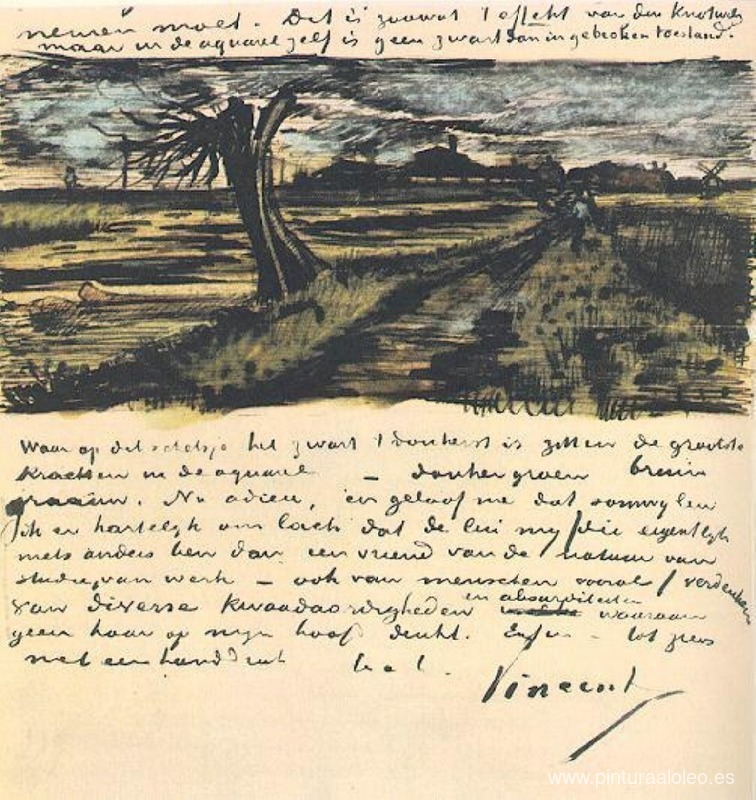 nemen moet. Dit is zoowat 't effekt van den Knotwilg
maar in de aquarel zelf is geen zwart dan in gebroken toestand.
Waar op dit schetsje het zwart 't donkerst is zitten de grootste
krachten in de aquarel – donkergroen bruin
graauw. Nu adieu, en geloof me dat somwylen
ik er hartelyk om lach dat de lui my /die eigentlyk
niets anders ben dan een vriend van de natuur van
studie, van werk – ook van menschen vooral / verdenken
van diverse kwaadaardigheden en absurditeiten waaraan
geen haar op myn hoofd denkt. Enfin – tot ziens
met een handdruk
Vincent
www.pinturaaloleo.es